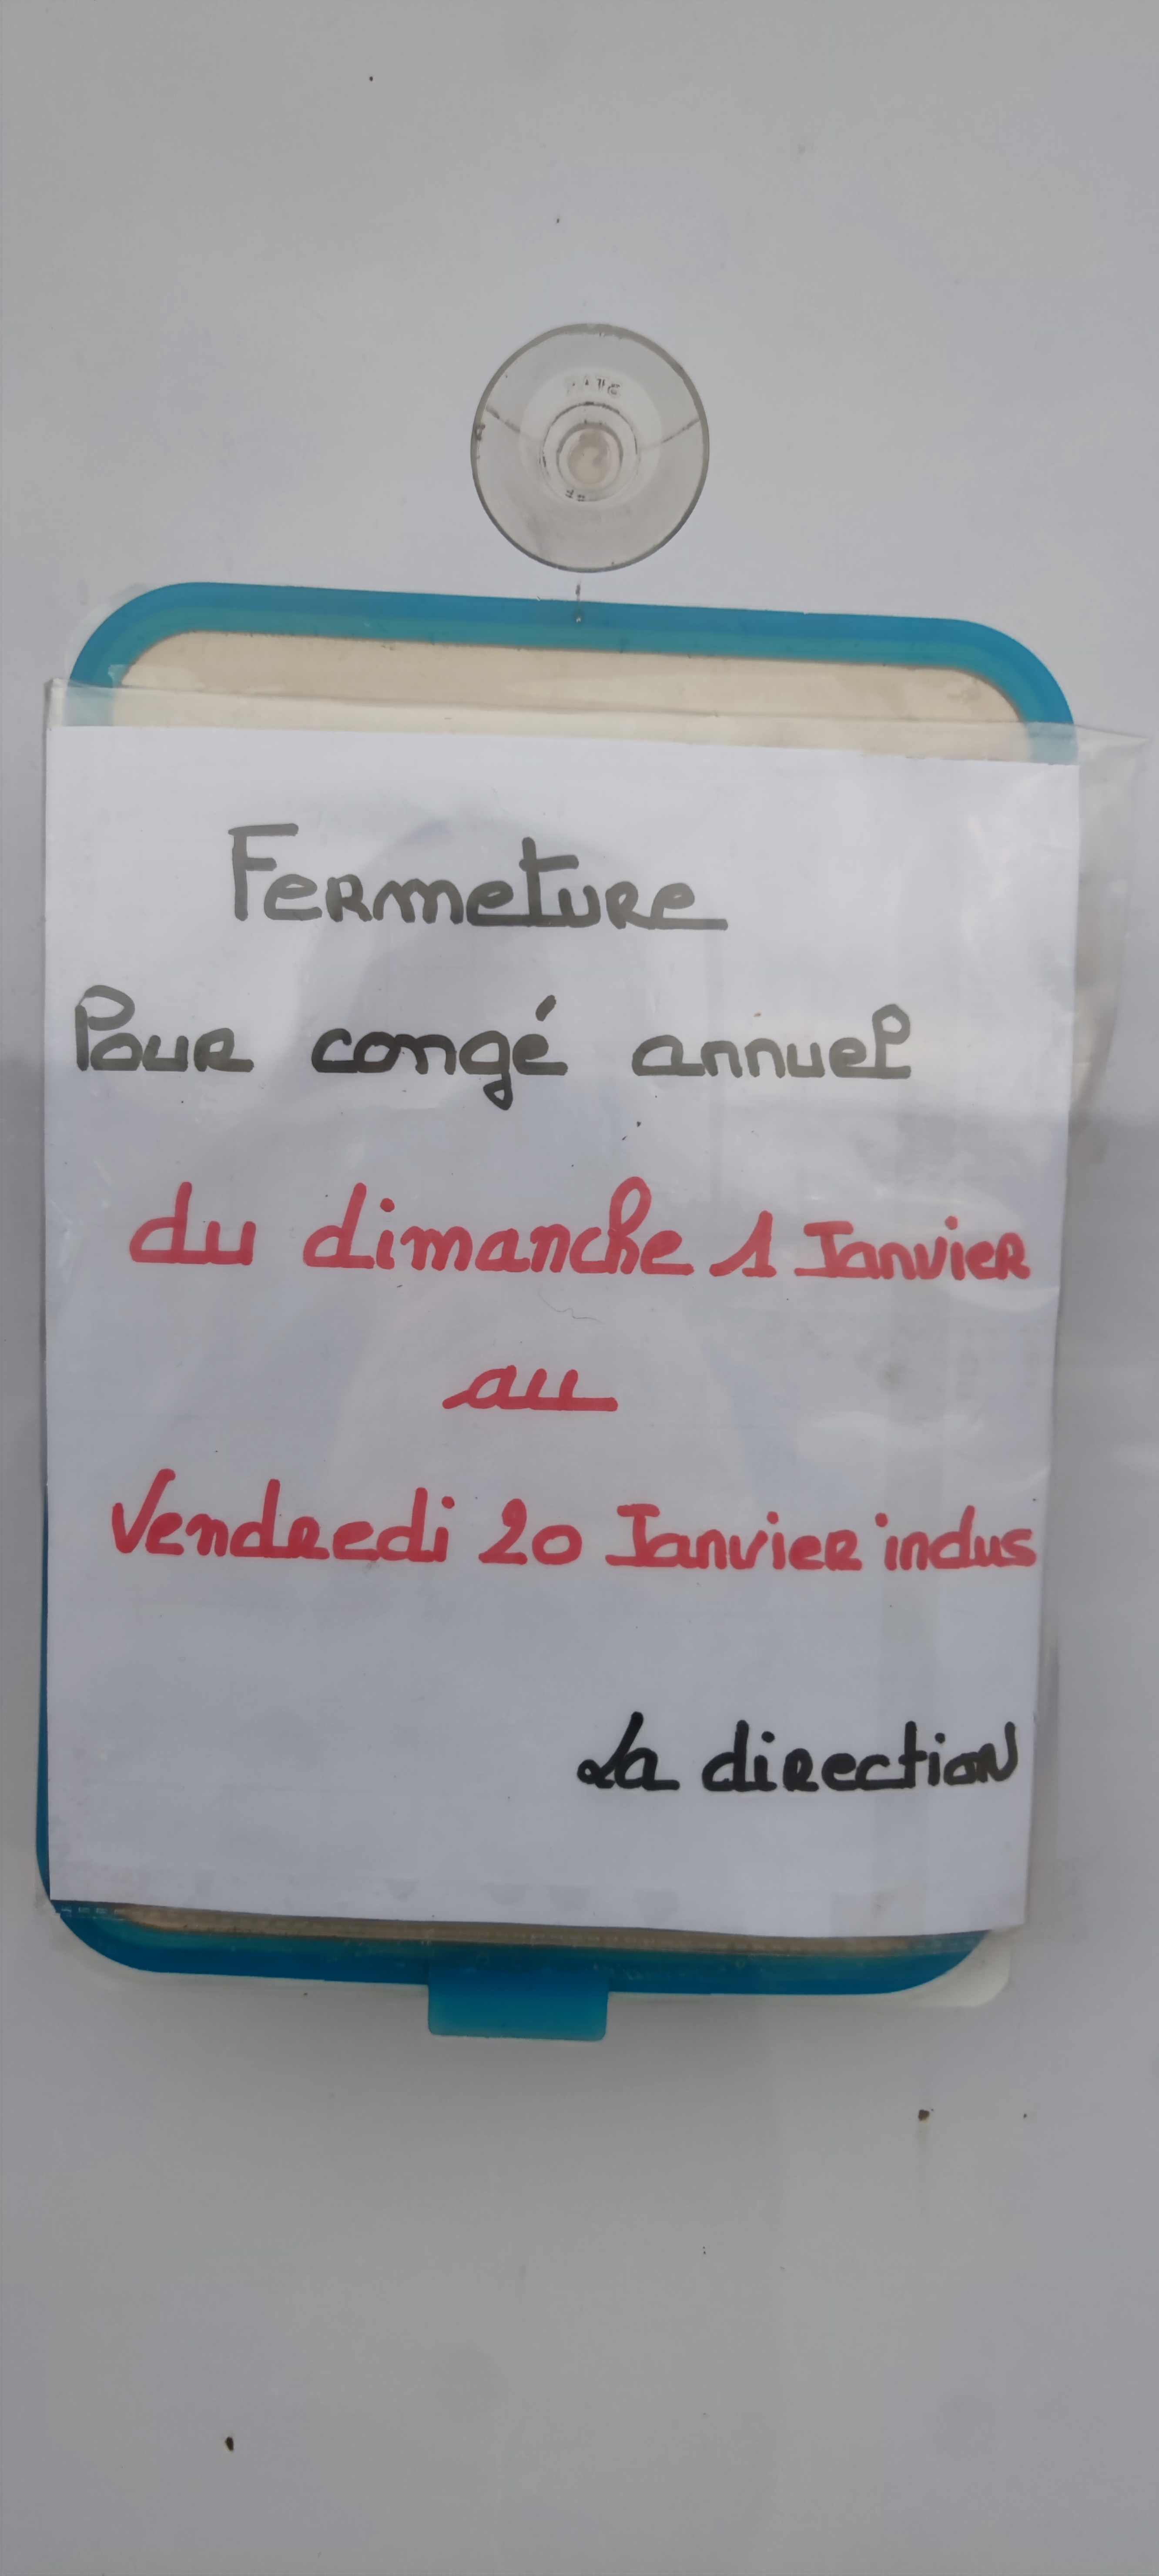 Fermeture
Pour congé annuel
du dimanche 1 Janvier
au
Vendredi 20 Janvier inclus
La direction